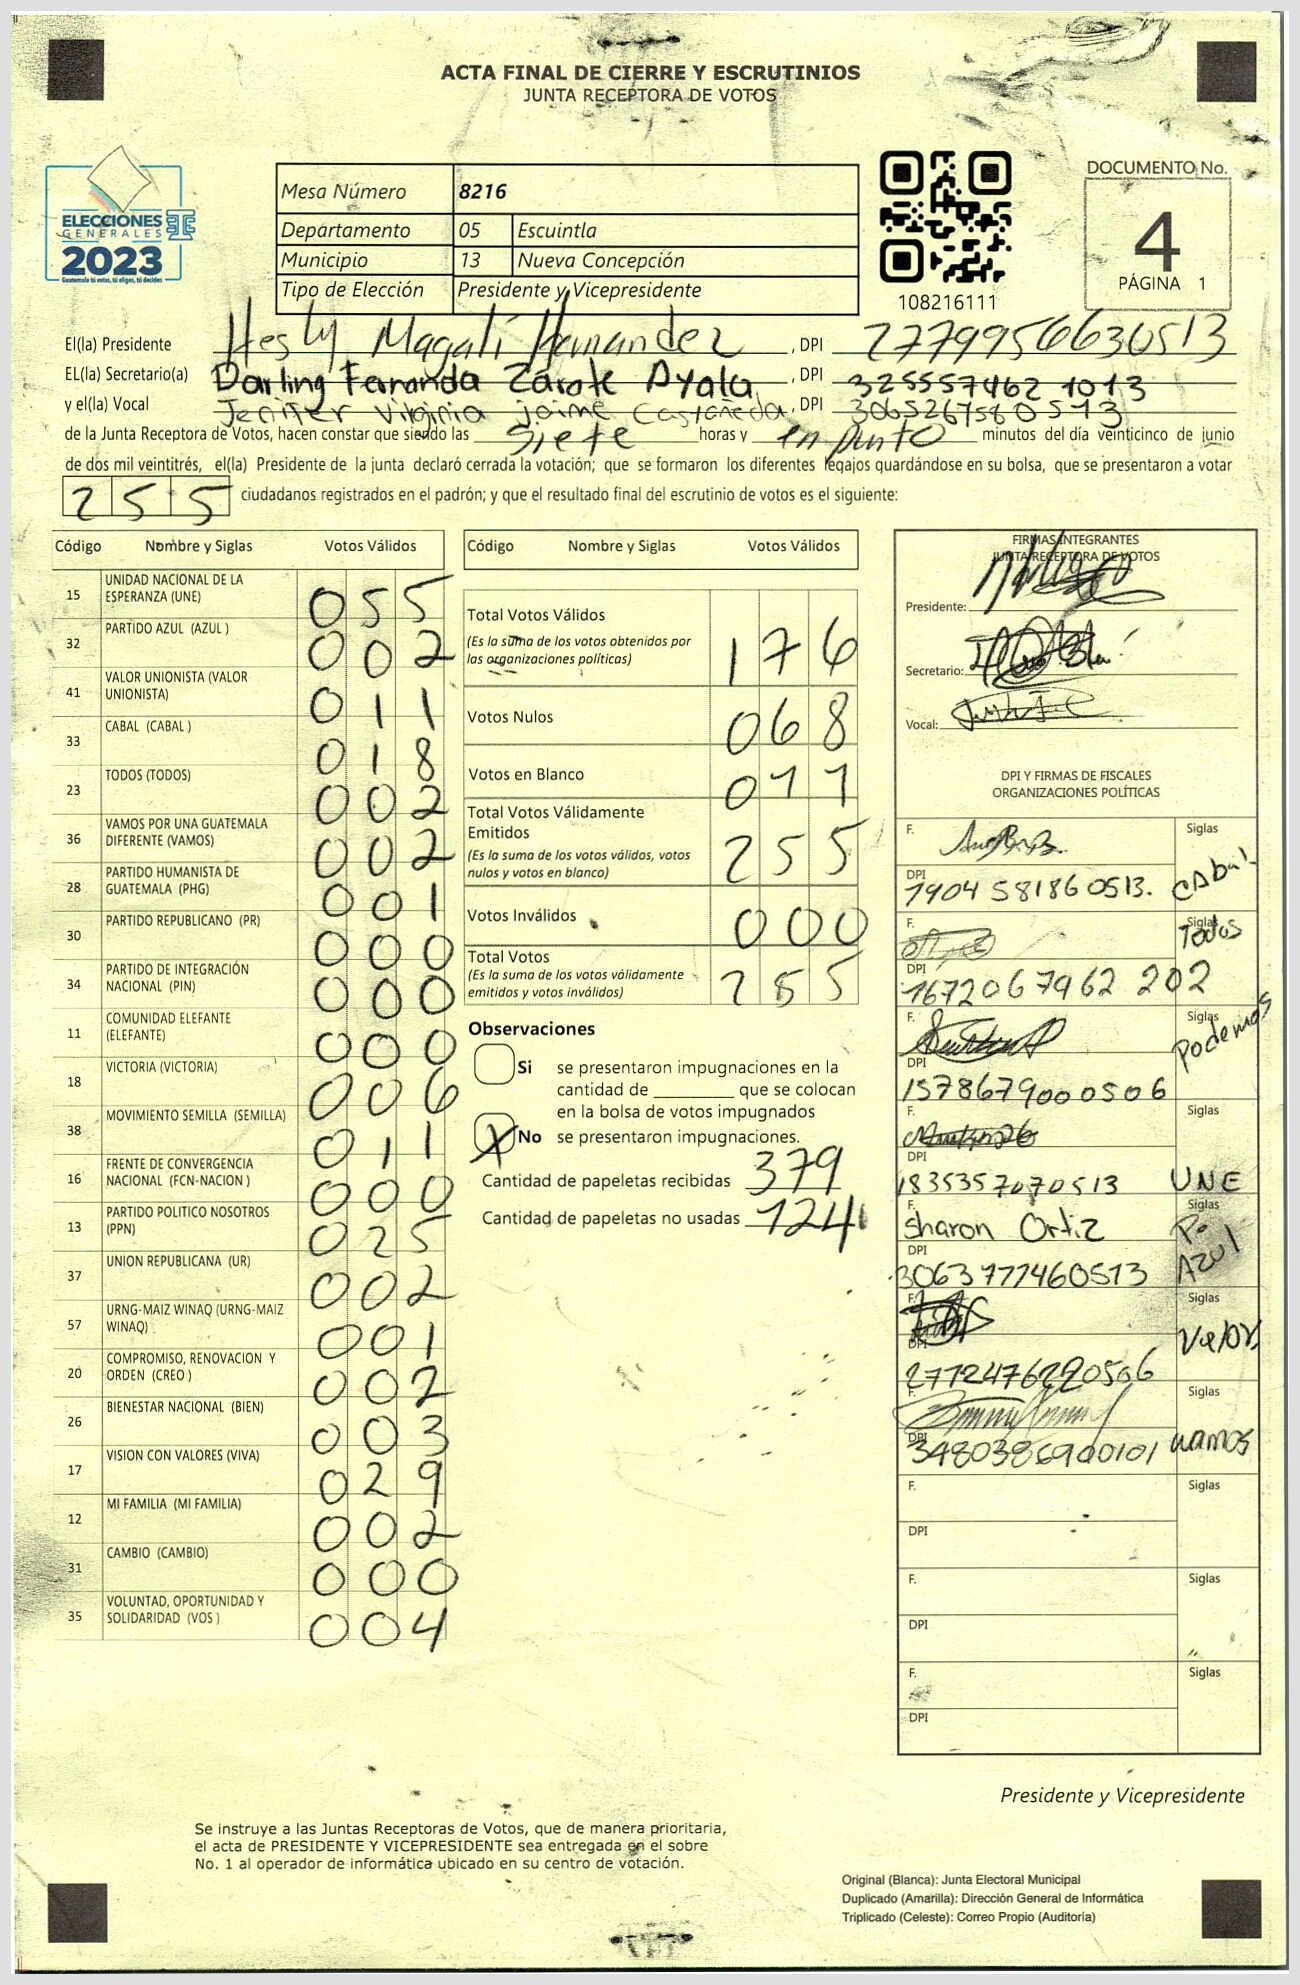 ACTA FINAL DE CIERRE Y ESCRUTINIOS
JUNTA RECEPTORA DE VOTOS
ELECCIONES
GENERALES
2023
Guatemala tú votas, tú eliges, tú decides
Mesa Número 8216
Departamento 05 Escuintla
Municipio 13 Nueva Concepción
Tipo de Elección Presidente y Vicepresidente
108216111
DOCUMENTO No.
4
PÁGINA 1
El(la) Presidente Hesly Magali Hernandez, DPI 2779956630513
EL(la) Secretario(a) Darling Fernanda Zarate Ayala, DPI 3255574621013
y el(la) Vocal Jenifer Virginia jaime Castañeda, DPI 3065267580513
de la Junta Receptora de Votos, hacen constar que siendo las siete horas y en punto minutos del día veinticinco de junio
de dos mil veintitrés, el(la) Presidente de la junta declaró cerrada la votación; que se formaron los diferentes legajos quardándose en su bolsa, que se presentaron a votar
255 ciudadanos registrados en el padrón; y que el resultado final del escrutinio de votos es el siguiente:
Código Nombre y Siglas Votos Válidos
15 UNIDAD NACIONAL DE LA ESPERANZA (UNE) 055
32 PARTIDO AZUL (AZUL ) 002
41 VALOR UNIONISTA (VALOR UNIONISTA) 011
33 CABAL (CABAL ) 018
23 TODOS (TODOS) 002
36 VAMOS POR UNA GUATEMALA DIFERENTE (VAMOS) 002
28 PARTIDO HUMANISTA DE GUATEMALA (PHG) 001
30 PARTIDO REPUBLICANO (PR) 000
34 PARTIDO DE INTEGRACIÓN NACIONAL (PIN) 000
11 COMUNIDAD ELEFANTE (ELEFANTE) 000
18 VICTORIA (VICTORIA) 006
38 MOVIMIENTO SEMILLA (SEMILLA) 011
16 FRENTE DE CONVERGENCIA NACIONAL (FCN-NACION ) 000
13 PARTIDO POLITICO NOSOTROS (PPN) 025
37 UNION REPUBLICANA (UR) 002
57 URNG-MAIZ WINAQ (URNG-MAIZ WINAQ) 001
20 COMPROMISO, RENOVACION Y ORDEN (CREO ) 002
26 BIENESTAR NACIONAL (BIEN) 003
17 VISION CON VALORES (VIVA) 029
12 MI FAMILIA (MI FAMILIA) 002
31 CAMBIO (CAMBIO) 000
35 VOLUNTAD, OPORTUNIDAD Y SOLIDARIDAD (VOS ) 004
Código Nombre y Siglas Votos Válidos
Total Votos Válidos 176
(Es la suma de los votos obtenidos por
las organizaciones políticas)
Votos Nulos 068
Votos en Blanco 011
Total Votos Válidamente
Emitidos 255
(Es la suma de los votos válidos, votos
nulos y votos en blanco)
Votos Inválidos 000
Total Votos 255
(Es la suma de los votos válidamente
emitidos y votos inválidos)
Observaciones
Si se presentaron impugnaciones en la
cantidad de ________ que se colocan
en la bolsa de votos impugnados
X No se presentaron impugnaciones.
Cantidad de papeletas recibidas 379
Cantidad de papeletas no usadas 124
FIRMAS INTEGRANTES
JUNTA RECEPTORA DE VOTOS
Presidente:
Secretario:
Vocal:
DPI Y FIRMAS DE FISCALES
ORGANIZACIONES POLÍTICAS
F. Siglas
DPI 1904 581860513. CAbal
F. Siglas Todos
DPI 1672067962202
F. Siglas Podemos
DPI 1578679000506
F. Siglas
DPI 1835357070513 UNE
F. Sharon Ortiz Siglas P. AZUl
DPI 3063777460513
F. Siglas Valor
DPI 2772476220506
F. Siglas
DPI 3480386900101 Vamos
F. Siglas
DPI
F. Siglas
DPI
F. Siglas
DPI
Presidente y Vicepresidente
Se instruye a las Juntas Receptoras de Votos, que de manera prioritaria,
el acta de PRESIDENTE Y VICEPRESIDENTE sea entregada en el sobre
No. 1 al operador de informática ubicado en su centro de votación.
Original (Blanca): Junta Electoral Municipal
Duplicado (Amarilla): Dirección General de Informática
Triplicado (Celeste): Correo Propio (Auditoría)